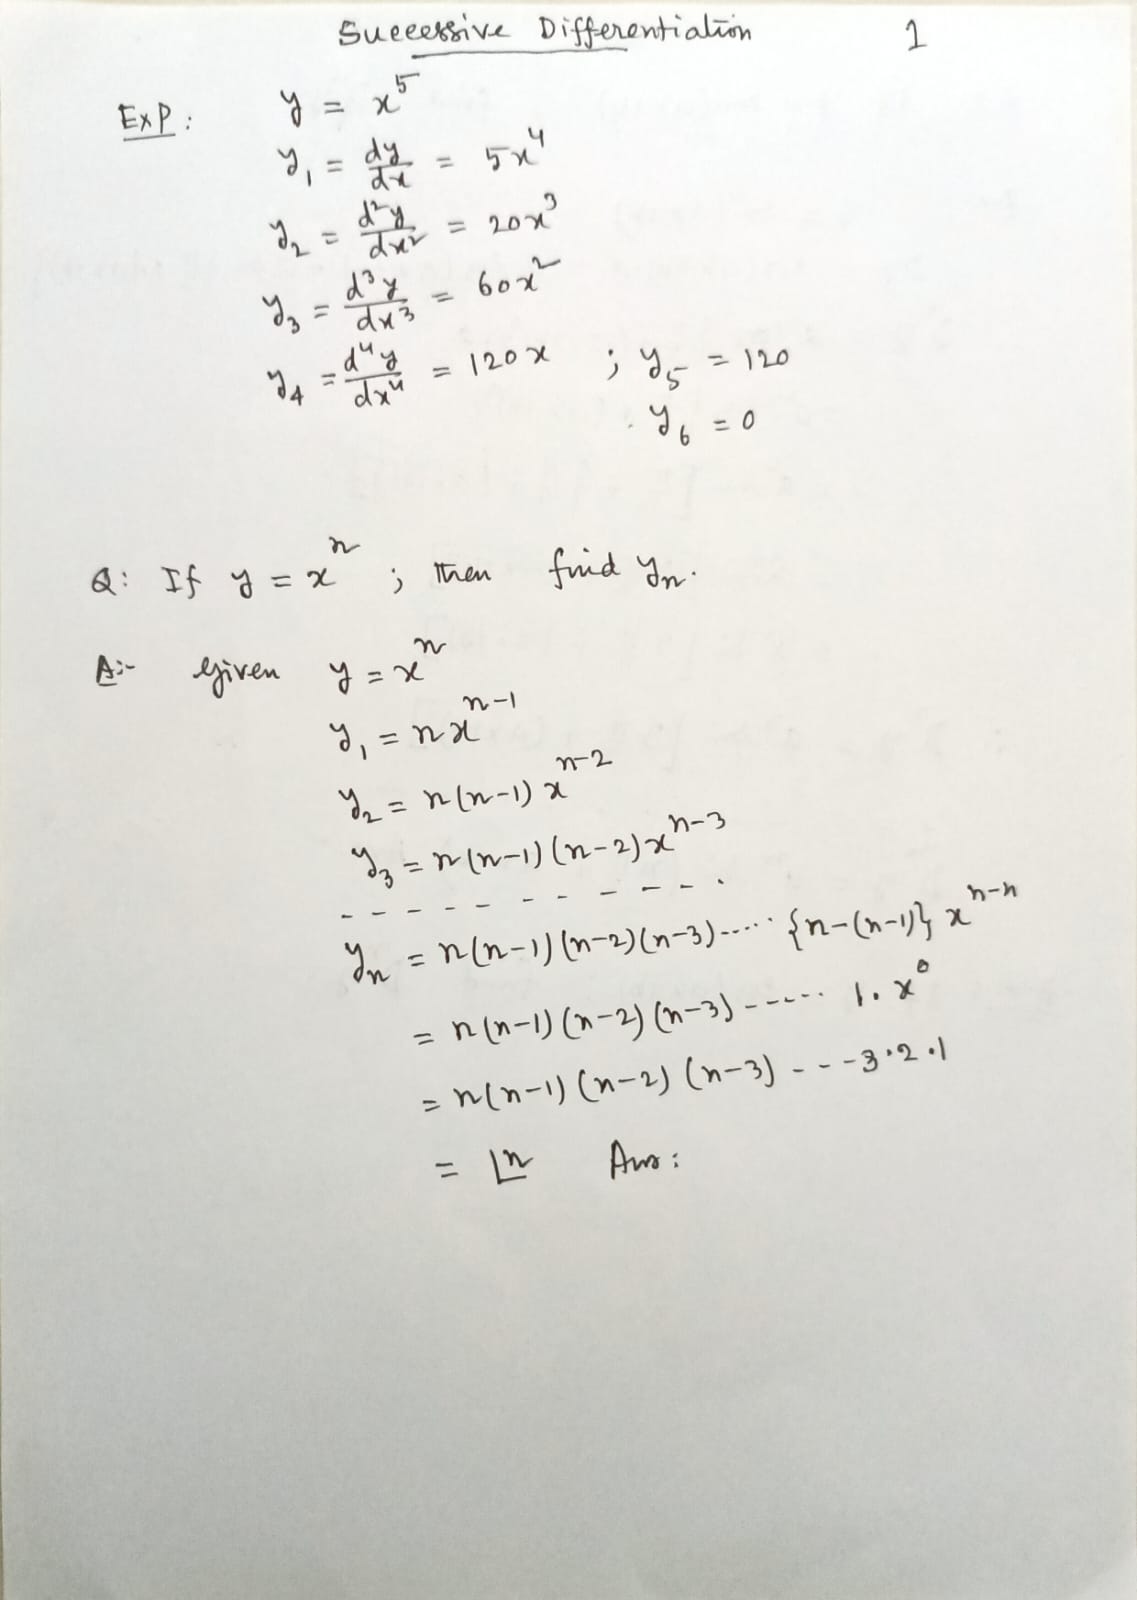 Successive Differentiation 1
Exp: y = x⁵
y₁ = dy/dx = 5x⁴
y₂ = d²y/dx² = 20x³
y₃ = d³y/dx³ = 60x²
y₄ = d⁴y/dx⁴ = 120x ; y₅ = 120
y₆ = 0
Q: If y = xⁿ ; then find yₙ.
A:- Given y = xⁿ
y₁ = nxⁿ⁻¹
y₂ = n(n-1)xⁿ⁻²
y₃ = n(n-1)(n-2)xⁿ⁻³
- - - - - - - - - - - .
yₙ = n(n-1)(n-2)(n-3)----- {n-(n-1)} xⁿ⁻ⁿ
= n(n-1)(n-2)(n-3)------ 1. x⁰
= n(n-1)(n-2)(n-3) - - -3·2·1
= |n Ans: